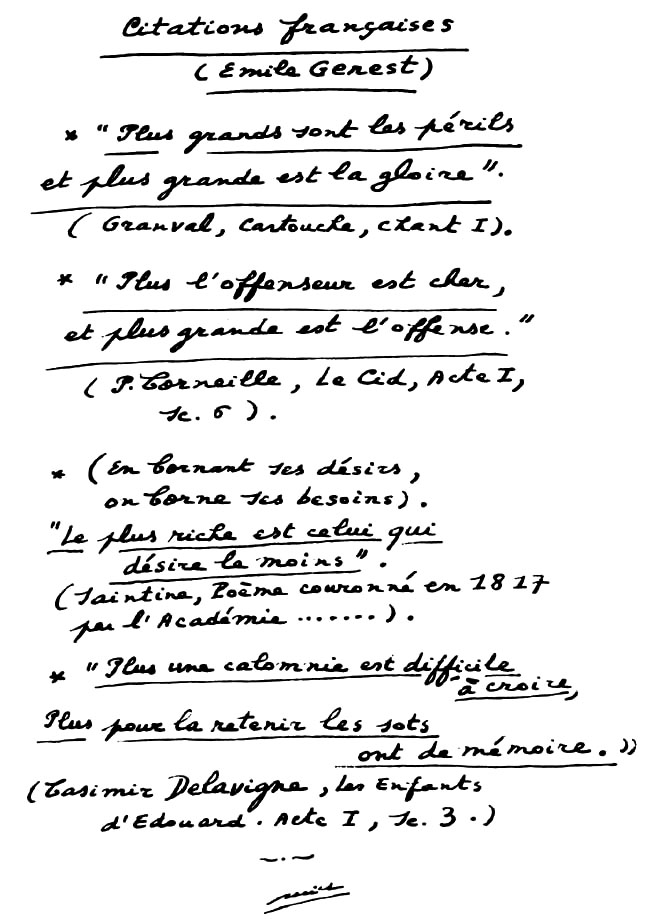 Citations françaises
(Emile Genest)
* "Plus grands sont les périls
et plus grande est la gloire".
(Granval, Cartouche, chant I).
* "Plus l'offenseur est cher,
et plus grande est l'offense."
(P. Corneille, Le Cid, Acte I,
sc. 6).
* (En bornant ses désirs,
on borne ses besoins).
"Le plus riche est celui qui
désire le moins".
(Saintine, Poème couronné en 1817
par l'Académie .......).
* "Plus une calomnie est difficile
à croire,
Plus pour la retenir les sots
ont de mémoire.»
(Casimir Delavigne, les Enfants
d'Edouard. Acte I, sc. 3.)